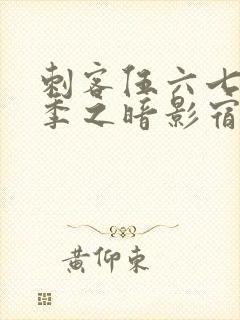 刺客伍六七
季之暗影宿
黄仰东